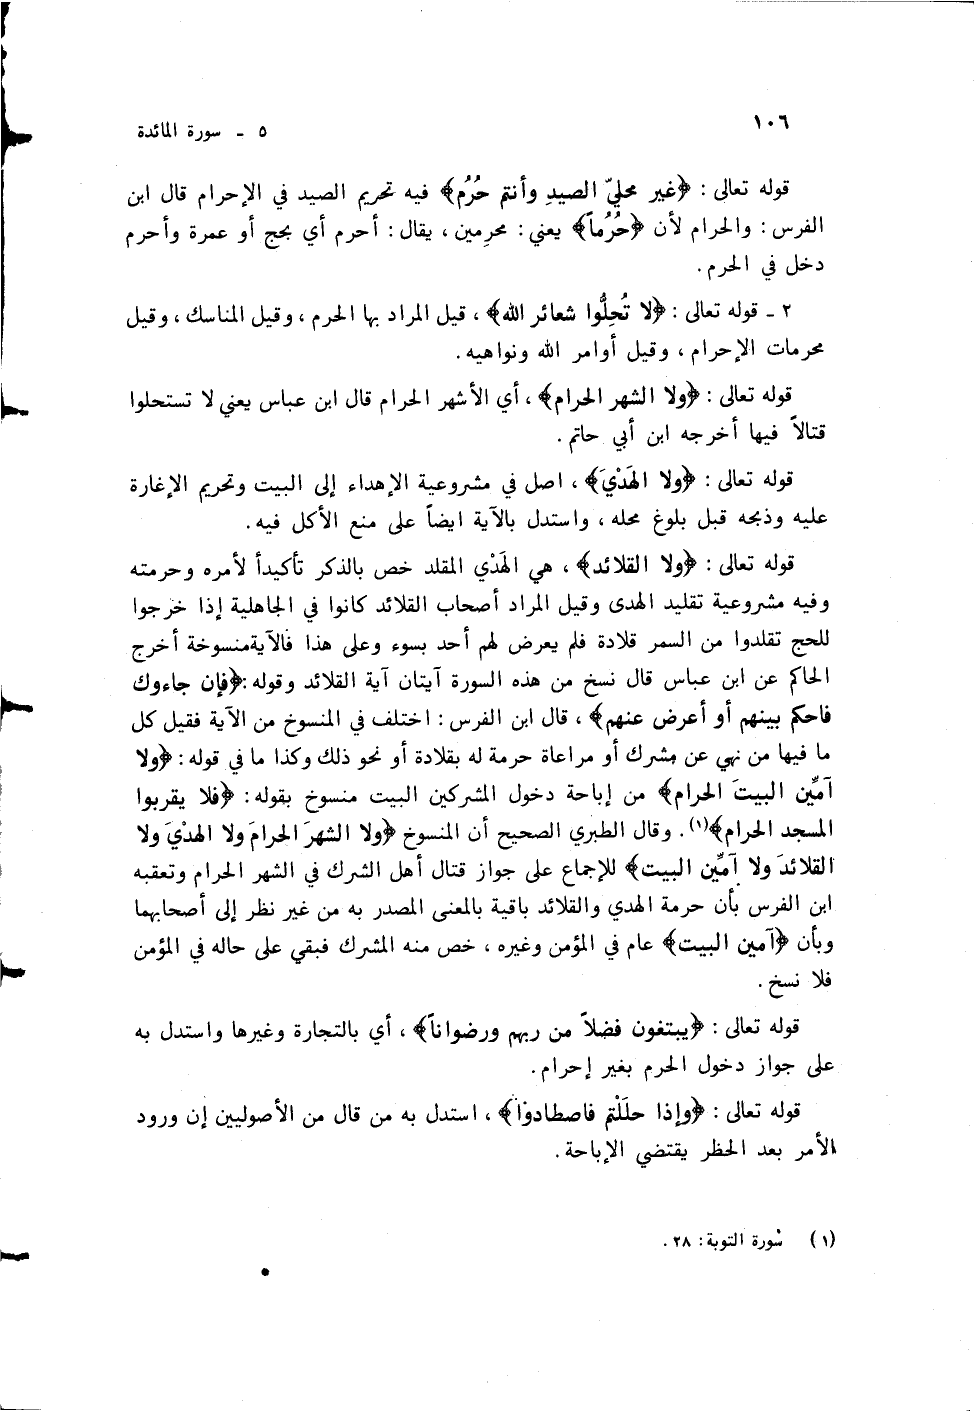 ١٠٦
٥ ـ سورة المائدة
قوله تعالى : ﴿غير محليّ الصيدِ وأنتم حُرُم﴾ فيه تحريم الصيد في الإحرام قال ابن
الفرس : والحرام لأن ﴿حُرُماً﴾ يعني : محرِمين ، يقال : أحرم أي بحج أو عمرة وأحرم
دخل في الحرم .
٢ ـ قوله تعالى : ﴿لا تُحِلُّوا شعائر الله﴾ ، قيل المراد بها الحرم ، وقيل المناسك ، وقيل
محرمات الإحرام ، وقيل أوامر الله ونواهيه .
قوله تعالى : ﴿ولا الشهر الحرام﴾ ، أي الأشهر الحرام قال ابن عباس يعني لا تستحلوا
قتالاً فيها أخرجه ابن أبي حاتم .
قوله تعالى : ﴿ولا الهَدْيَ﴾ ، اصل في مشروعية الإهداء إلى البيت وتحريم الإغارة
عليه وذبحه قبل بلوغ محله ، واستدل بالآية ايضاً على منع الأكل فيه .
قوله تعالى : ﴿ولا القلائد﴾ ، هي الهَدْي المقلد خص بالذكر تأكيدأ لأمره وحرمته
وفيه مشروعية تقليد الهدى وقيل المراد أصحاب القلائد كانوا في الجاهلية إذا خرجوا
للحج تقلدوا من السمر قلادة فلم يعرض لهم أحد بسوء وعلى هذا فالآيةمنسوخة أخرج
الحاكم عن ابن عباس قال نسخ من هذه السورة آيتان آية القلائد وقوله :﴿فإن جاءوك
فاحكم بينهم أو أعرض عنهم﴾ ، قال ابن الفرس : اختلف في المنسوخ من الآية فقيل كل
ما فيها من نهي عن مشرك أو مراعاة حرمة له بقلادة أو نحو ذلك وكذا ما في قوله : ﴿ولا
آمِّين البيتَ الحرام﴾ من إباحة دخول المشركين البيت منسوخ بقوله : ﴿فلا يقربوا
المسجد الحرام﴾(١) . وقال الطبري الصحيح أن المنسوخ ﴿ولا الشهرَ الحرامَ ولا الهدْيَ ولا
القلائدَ ولا آمِّين البيت﴾ للإجماع على جواز قتال أهل الشرك في الشهر الحرام وتعقبه
ابن الفرس بأن حرمة الهدي والقلائد باقية بالمعنى المصدر به من غير نظر إلى أصحابهما
وبأن ﴿آمين البيت﴾ عام في المؤمن وغيره ، خص منه المشرك فبقي على حاله في المؤمن
فلا نسخ .
قوله تعالى : ﴿يبتغون فضلاً من ربهم ورضواناً﴾ ، أي بالتجارة وغيرها واستدل به
على جواز دخول الحرم بغير إحرام .
قوله تعالى : ﴿وإذا حلَلْتم فاصطادوا﴾ ، استدل به من قال من الأصوليين إن ورود
الأمر بعد الحظر يقتضي الإباحة .
(١) سورة التوبة : ٢٨ .